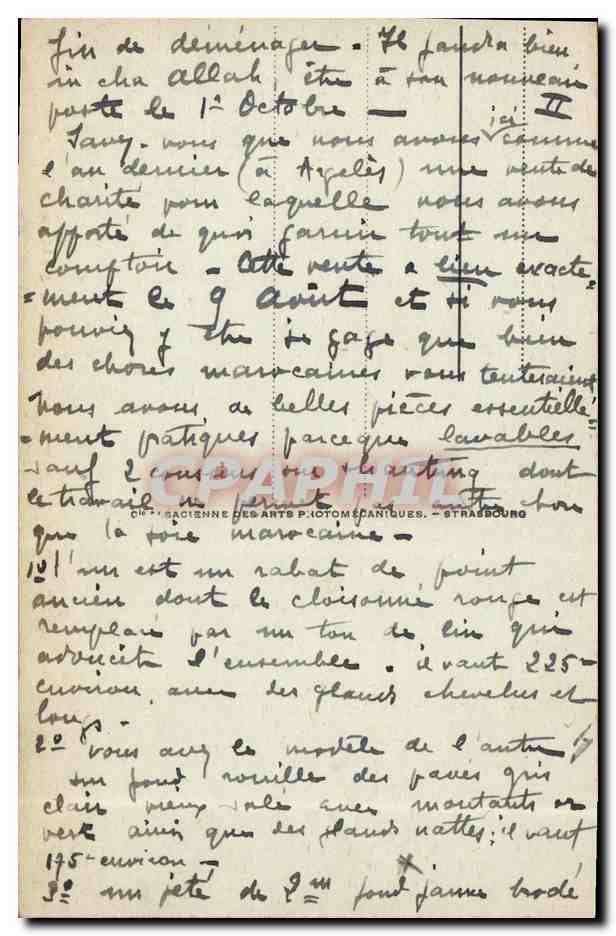 fin de déménager. Il faudra bien
in cha Allah, être à son nouveau
poste le 1er Octobre — II
Savez-vous que nous avons ici comme
l'an dernier (à Argelès) une vente de
charité pour laquelle nous avons
apporté de quoi garnir tout un
comptoir. Cette vente a lieu exacte=
=ment le 9 Août et si vous
pouviez y être je gage que bien
des choses marocaines vous tenteraient
Nous avons de belles pièces essentielle=
=ment pratiques parceque lavables
sauf 2 coussins sur shantung dont
le travail ne permet pas autre chose
que la soie marocaine —
CPAPHIL
Cie ALSACIENNE DES ARTS PHOTOMÉCANIQUES. — STRASBOURG
1º l'un est un rabat de point
ancien dont le cloisonné rouge est
remplacé par un ton de lin qui
adoucit l'ensemble. il vaut 225-
environ avec des glands chevelus et
longs.
2º vous avez le modèle de l'autre
sur fond rouille des pavés gris
clair vieux avec montants or
vert ainsi que des glands nattés; il vaut
175- environ —
3º un jeté de 2m fond jaune brodé